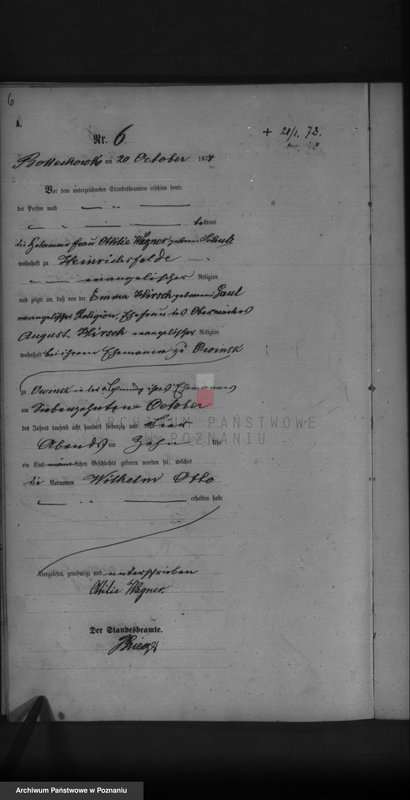 6
A.
Nr. 6
+ 28/1. 73.
am 20 October 1874
Vor dem unterzeichneten Standesbeamten erschien heute
der Person nach
bekannt
die Hebamme Frau Ottilie Wagner geborene
wohnhaft zu Heinrichsfelde
evangelischer Religion
und zeigte an, daß von der Emma Hirsch geborenen Paul
evangelischer Religion, Ehefrau des
August Hirsch evangelischer Religion
wohnhaft bei ihrem Ehemanne zu Owinsk
zu Owinsk in der Wohnung ihres Ehemannes
am Siebenzehnten October
des Jahres tausend acht hundert siebenzig und vier
Abends um Zehn Uhr
ein Kind männlichen Geschlechts geboren worden sei, welches
die Vornamen Wilhelm Otto
erhalten habe
Vorgelesen, genehmigt und unterschrieben
Ottilie Wagner.
Der Standesbeamte.
ARCHIWUM PAŃSTWOWE
W POZNANIU
Archiwum Państwowe w Poznaniu